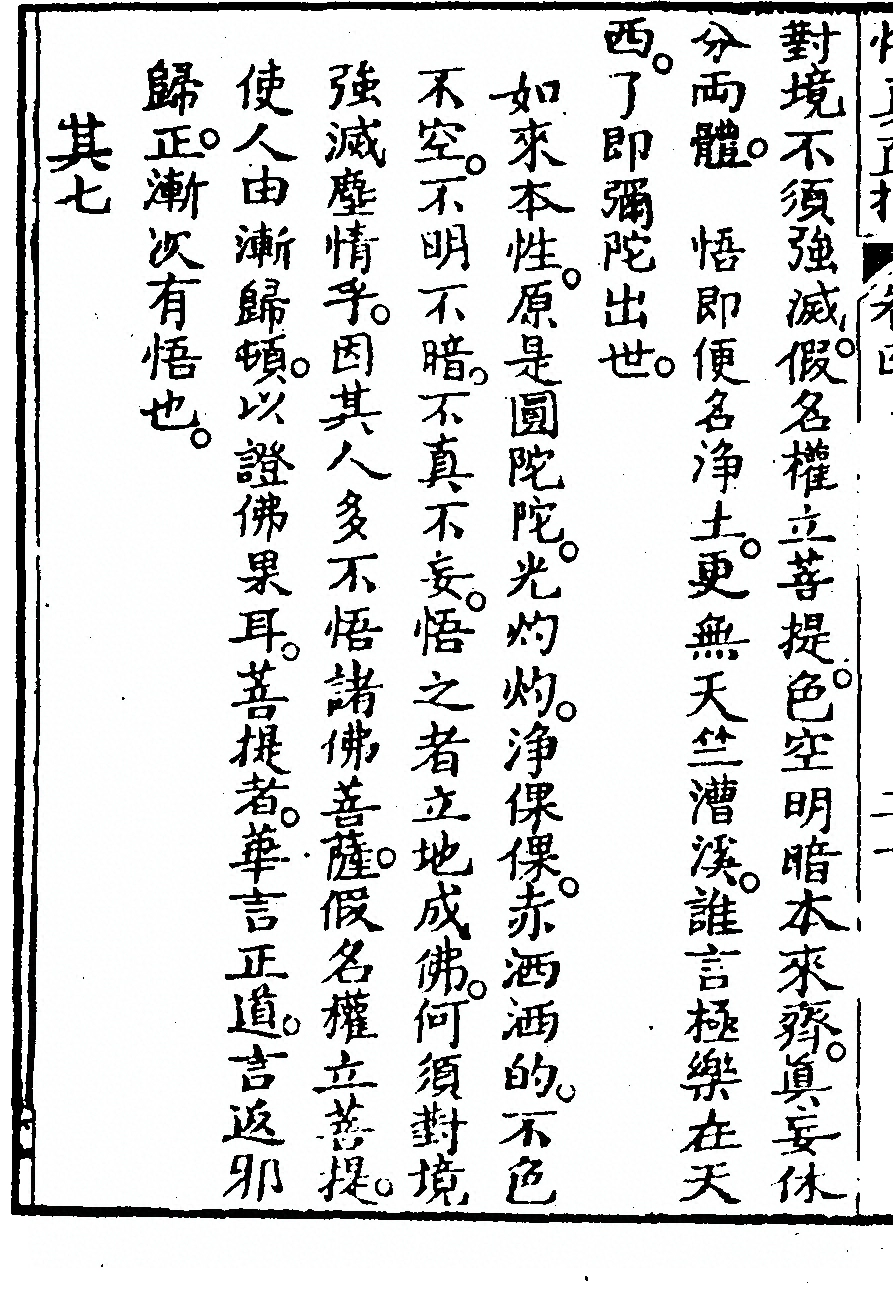 對境不須強滅。假名權立菩提。色空明暗本來齊。眞妄休
分兩體。　悟即便名浄土。更無天竺漕溪。誰言極樂在天
西。了即彌陀出世。
如來本性。原是圓陀陀。光灼灼。浄倮倮。赤洒洒的。不色
不空。不明不暗。不真不妄。悟之者立地成佛。何須對境
強滅塵情乎。因其人多不悟諸佛菩薩。假名權立菩提。
使人由漸歸頓。以證佛果耳。菩提者。華言正道。言返邪
歸正。漸次有悟也。
其七